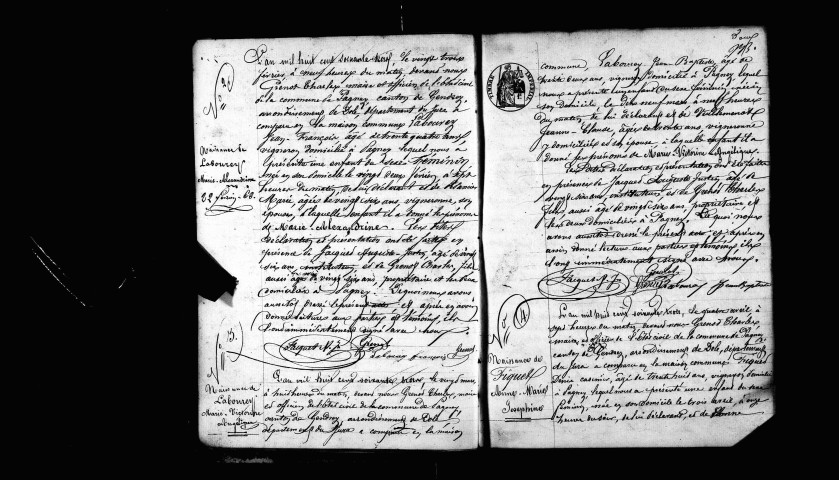 L'an mil huit cent soixante trois, le vingt trois
février, à neuf heures du matin, devant nous
Grenot Charles maire et officier de l'état civil
de la commune de Pagney, canton de Gendrey,
arrondissement de Dole, département du Jura a
comparu en la maison commune Labourey
Jean François âgé de trente quatre ans,
vigneron, domicilié à Pagney lequel nous a
présenté une enfant du sexe féminin
née en son domicile le vingt deux février, à sept
heures du matin, de lui déclarant et de
Marie, âgée de vingt six ans, vigneronne, son
épouse, à laquelle enfant il a donné les prénoms
de Marie Alexandrine. Les dites
déclaration et présentation ont été faites en
présence de Jacques Auguste Justin, âgé de vingt
six ans, instituteur, et de Grenot Charles, fils
aussi âgé de vingt six ans, propriétaire et tous deux
domiciliés à Pagney. De quoi nous avons
aussitôt dressé le présent acte et après en avoir
donné lecture aux parties et témoins, ils
l'ont immédiatement signé avec nous.
Jacques A. J. Grenot
Labourey françois Grenot
Naissance de
Labourey
Marie Alexandrine
22 février 63.
N° 13.
Naissance de
Labourey
Marie Victoire
Angélique
L'an mil huit cent soixante trois, le vingt
à huit heures du matin, devant nous Grenot Charles, maire
et officier de l'état civil de la commune de Pagney
canton de Gendrey arrondissement de Dole,
département du Jura a comparu en la maison
commune, Labourey Jean Baptiste, âgé de
trente deux ans, vigneron, domicilié à Pagney, lequel
nous a présenté une enfant du sexe féminin, née en
son domicile, le dix neuf mars, à neuf heures
du matin, de lui déclarant et de
Jeanne Claude, âgée de trente ans, vigneronne
y domiciliée et son épouse, à laquelle enfant il a
donné les prénoms de Marie Victoire Angélique.
Les dites déclaration et présentation ont été faites
en présence de Jacques Auguste Justin, âgé de
vingt six ans, instituteur, et de Grenot Charles
fils, aussi âgé de vingt six ans, propriétaire et
tous deux domiciliés à Pagney. De quoi nous
avons aussitôt dressé le présent acte, et après en
avoir donné lecture aux parties et témoins, ils
l'ont immédiatement signé avec nous.
Jacques A. J. Grenot
Labourey Jean Baptiste
N° 14
Naissance de
Figuet
Anne Marie
Joséphine
L'an mil huit cent soixante trois, le quatre avril à
sept heures du matin, devant nous Grenot Charles,
maire, et officier de l'état civil de la commune de Pagney
canton de Gendrey, arrondissement de Dole, département
du Jura a comparu en la maison commune Figuet
Denis Casimir, âgé de trente huit ans, vigneron, domicilié
à Pagney, lequel nous a présenté une enfant du sexe
féminin, née en son domicile le trois avril, à onze
heures du soir, de lui déclarant, et de